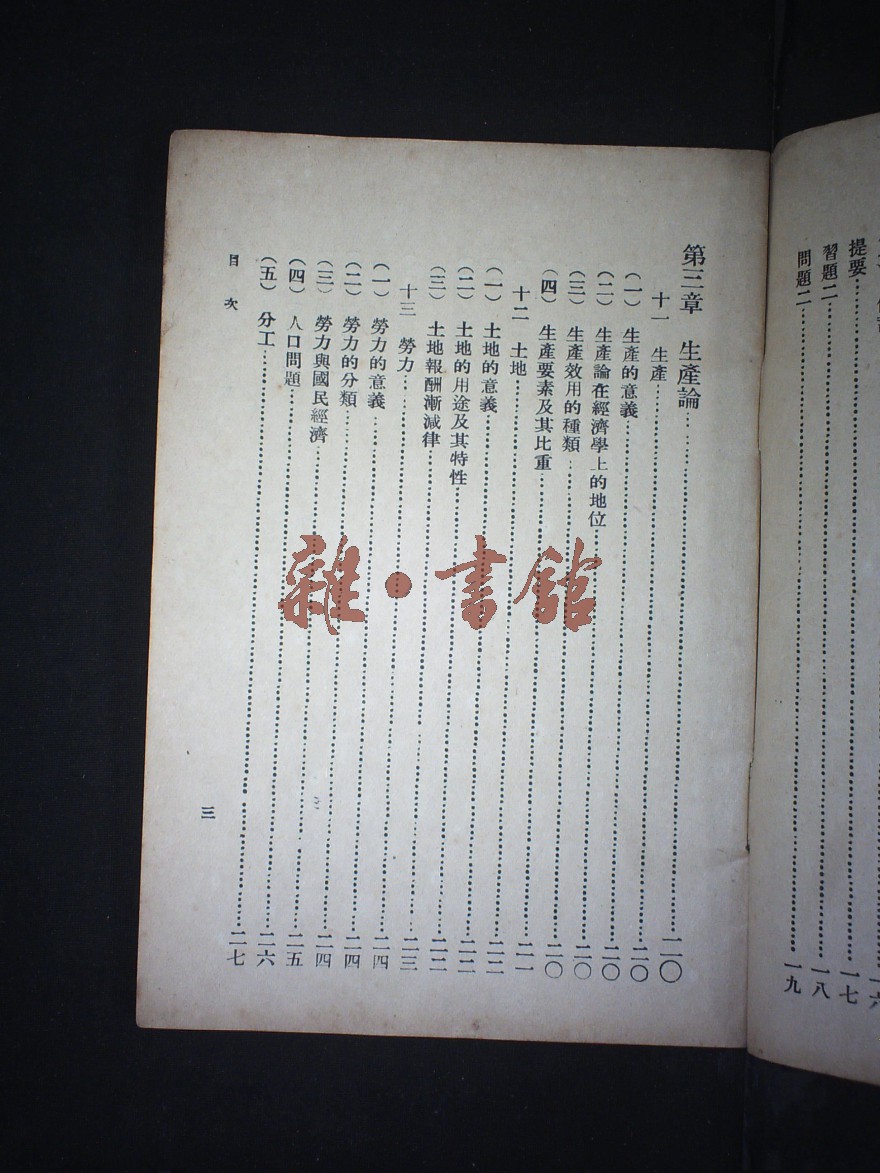 一六
提要……一七
習題二……一八
問題二……一九
第三章 生產論……二〇
十一 生產……二〇
（一） 生產的意義……二〇
（二） 生產論在經濟學上的地位……二〇
（三） 生產效用的種類……二〇
（四） 生產要素及其比重……二一
十二 土地……二二
（一） 土地的意義……二二
（二） 土地的用途及其特性……二二
（三） 土地報酬漸減律……二三
十三 勞力……二四
（一） 勞力的意義……二四
（二） 勞力的分類……二四
（三） 勞力與國民經濟……二五
（四） 人口問題……二六
（五） 分工……二七
目次
三
雜·書館